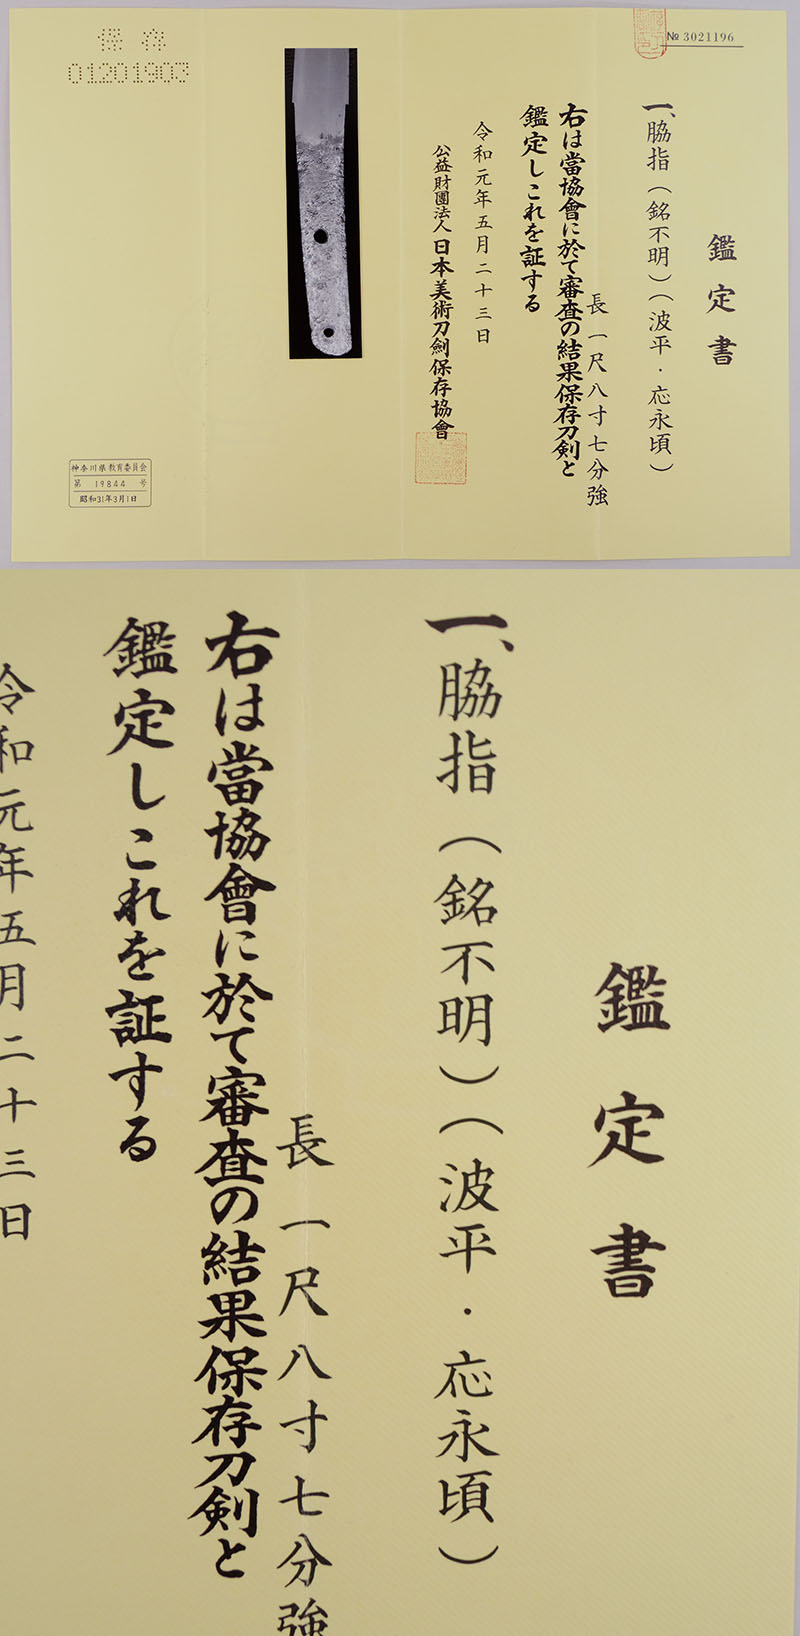 № 3021196
鑑定書
一、脇指（銘不明）（波平・応永頃）
長 一尺八寸七分強
右は當協會に於て審査の結果保存刀剣と
鑑定しこれを証する
令和元年五月二十三日
公益財團法人日本美術刀剣保存協會
保存
01201903
神奈川県教育委員会
第 19844 号
昭和31年3月1日
鑑定書
一、脇指（銘不明）（波平・応永頃）
長 一尺八寸七分強
右は當協會に於て審査の結果保存刀剣と
鑑定しこれを証する
令和元年五月二十三日